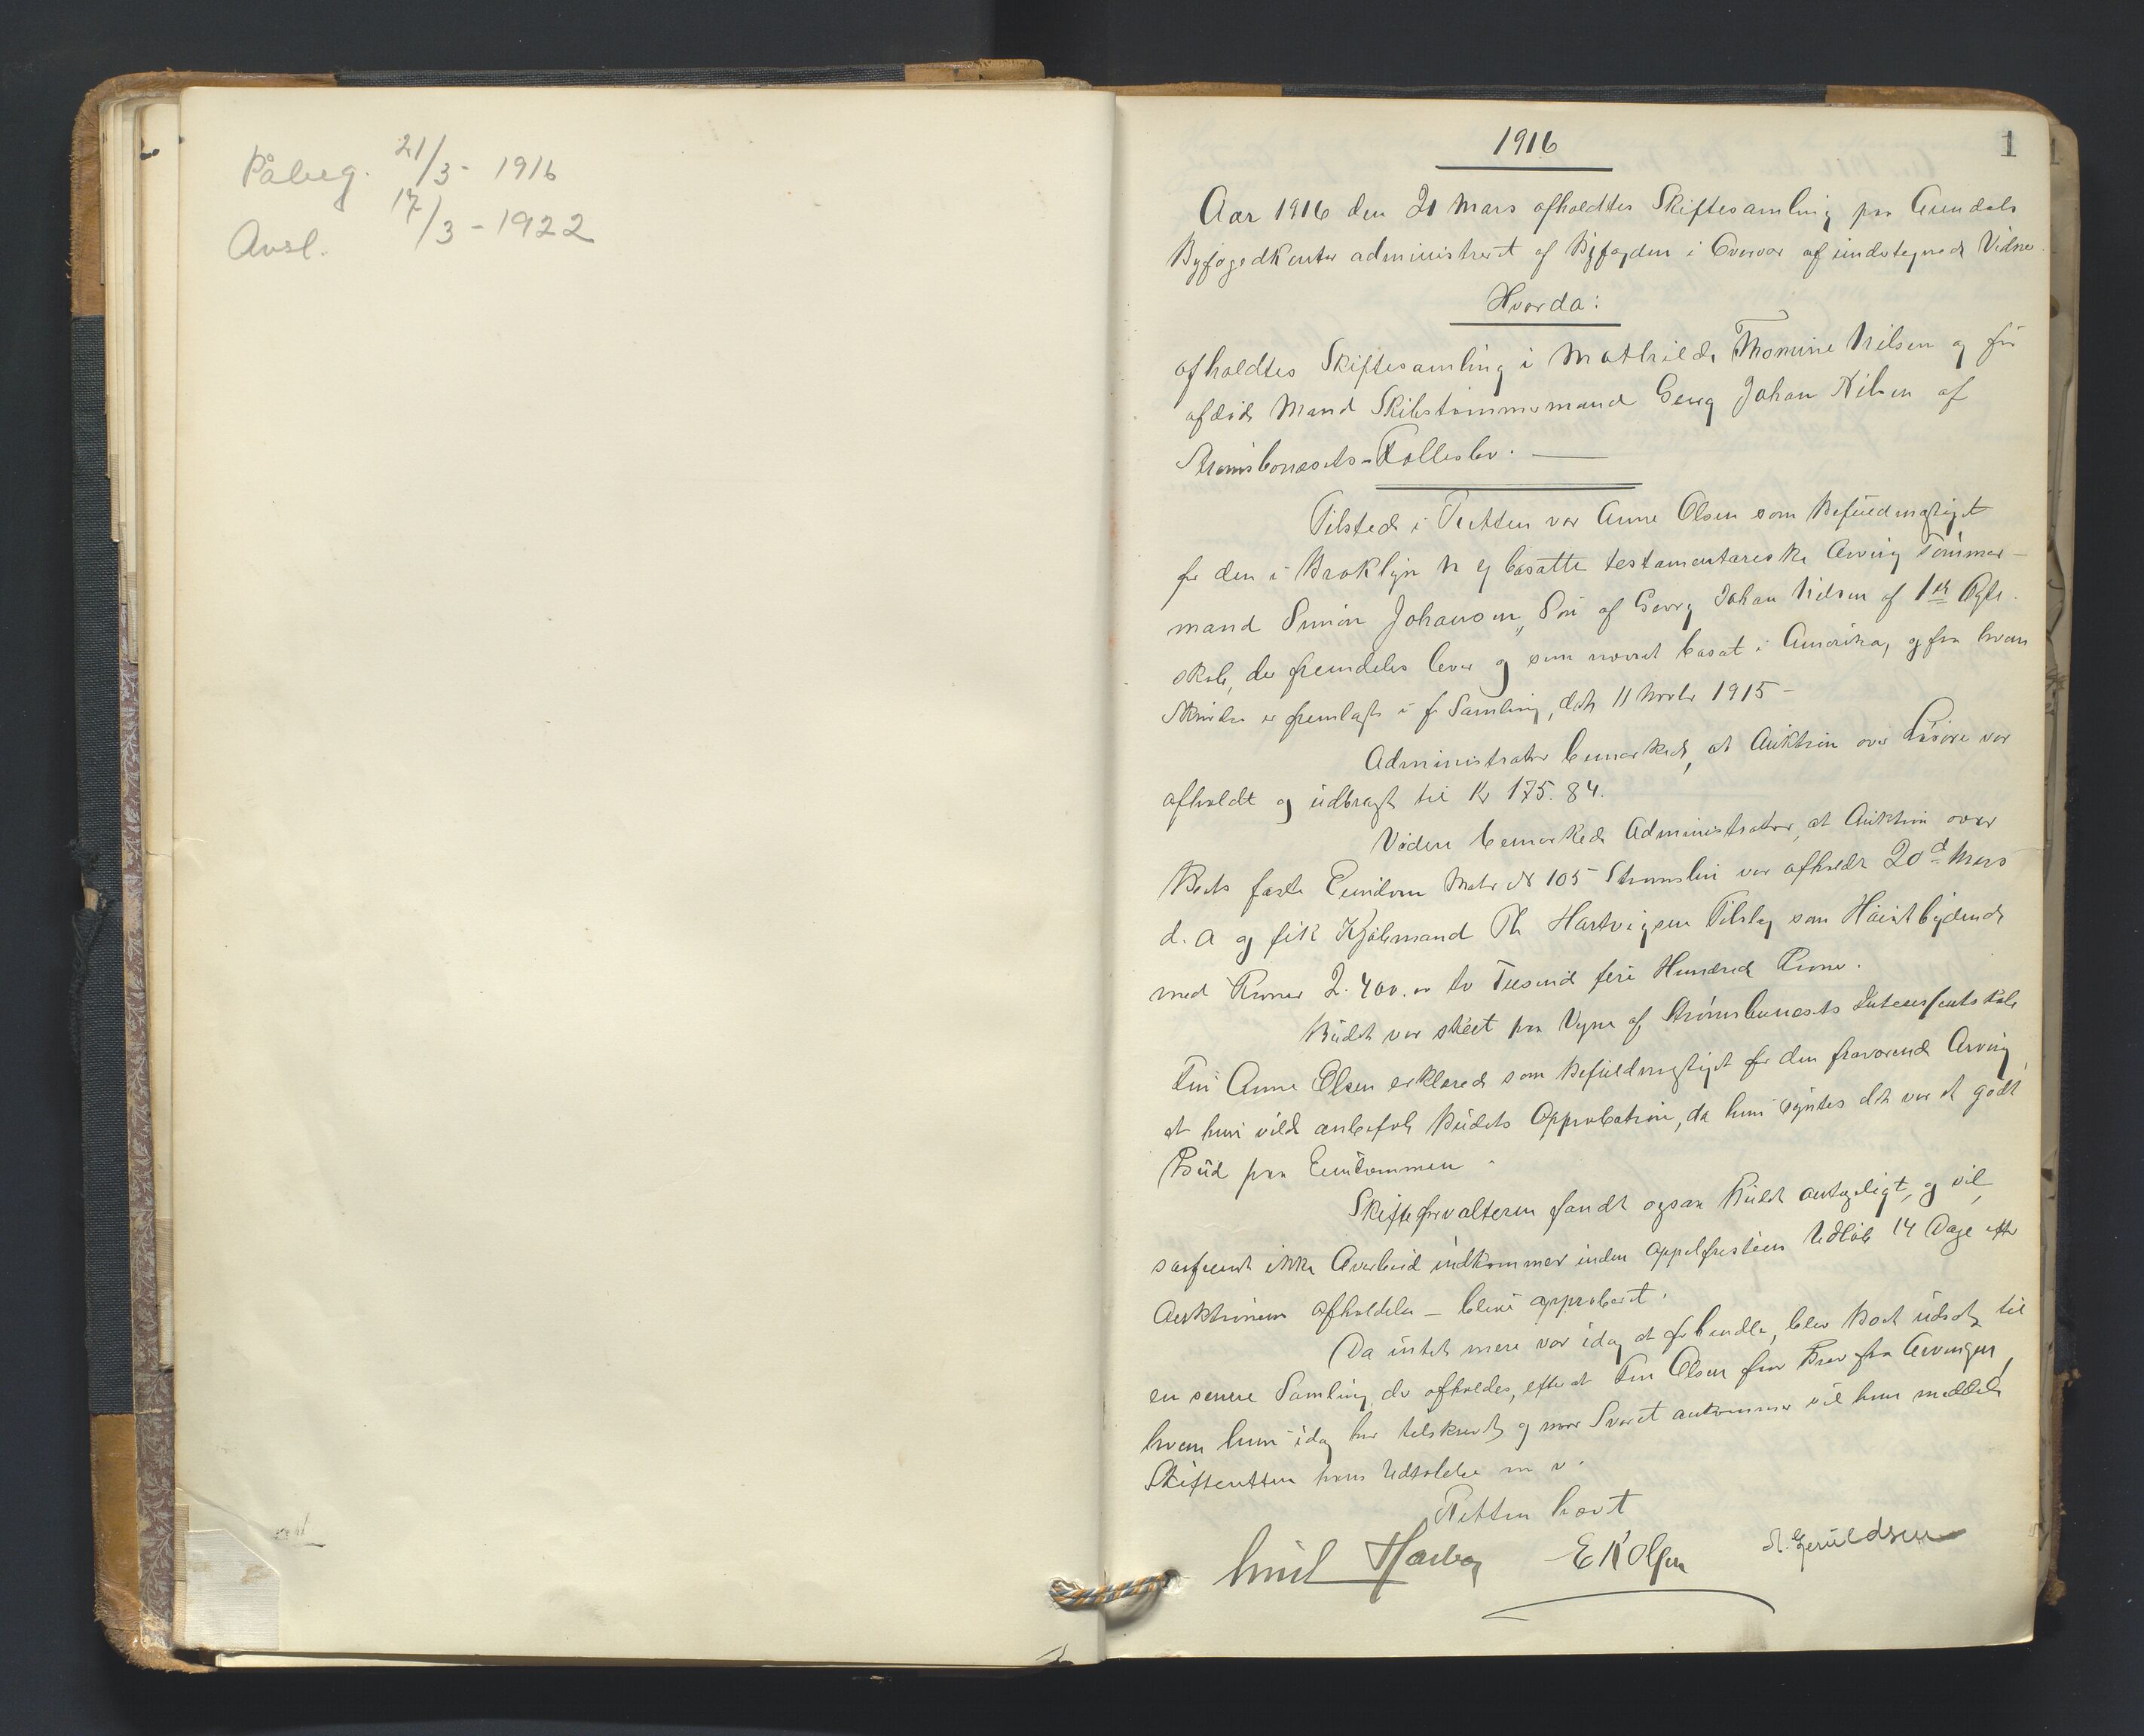 Påbeg. 21/3 - 1916
Avsl. 17/3 - 1922
1916
1
Aar 1916 den 21 Mars afholdtes Skiftesamling paa Arendals
Byfogedkontor administreret af Byfogden i Overvær af undertegnede Vidner.
Hvorda:
afholdtes Skiftesamling i Mathilde Thomine Nilsen og før
afdøde Mand Skibstømmermand Georg Johan Nilsen af
Strømsbonæsets Fællesbo.
Tilstede i Retten var Anne Olsen som Befuldmægtiget
for den i Broklyn N Y bosatte testamentariske Arving Tømmer-
mand Simon Johansen, Søn af Georg Johan Nilsen af 1ste Ægte-
skab, der fremdeles lever og som nævnt bosat i Amerika, og fra hvem
Skrivelse er fremlagt i f Samling, dat 11 Novbr 1915 -
Administrator bemærkede, at Auktion over Løsøre var
afholdt og udbragt til Kr 175.84.
Videre bemærkede Administrator, at Auktion over
Boets faste Eiendom Matr N 105 Strømsbu var afholdt 20d Mars
d. A og fik Kjøbmand Th Hartvigsen Tilslag som Høistbydende
med Kroner 2.400.00 to Tusind fire Hundred Kroner.
Budet var skeet paa Vegne af Strømsbunæsets Interessentskab
Fru Anne Olsen erklærede som Befuldmægtiget for den fraværende Arving,
at hun vilde anbefale Budets Approbation, da hun syntes det var et godt
Bud paa Eiendommen.
Skifteforvalteren fandt ogsaa Budet antageligt, og vil,
saafremt ikke Overbud indkommer inden Appelfristens Udløb 14 Dage efter
Auktionens Afholdelse - blive approberet.
Da intet mere var idag at forhandle, blev Boet udsat til
en senere Samling, der afholdes, efterat Fru Olsen faar Brev fra Arvingen,
hvem hun idag har tilskrevet, og naar Svaret ankommer vil hun meddele
Skifteretten hans Udtalelse m v.
Retten hævet
Emil Harboe E K Olsen A. Geruldsen